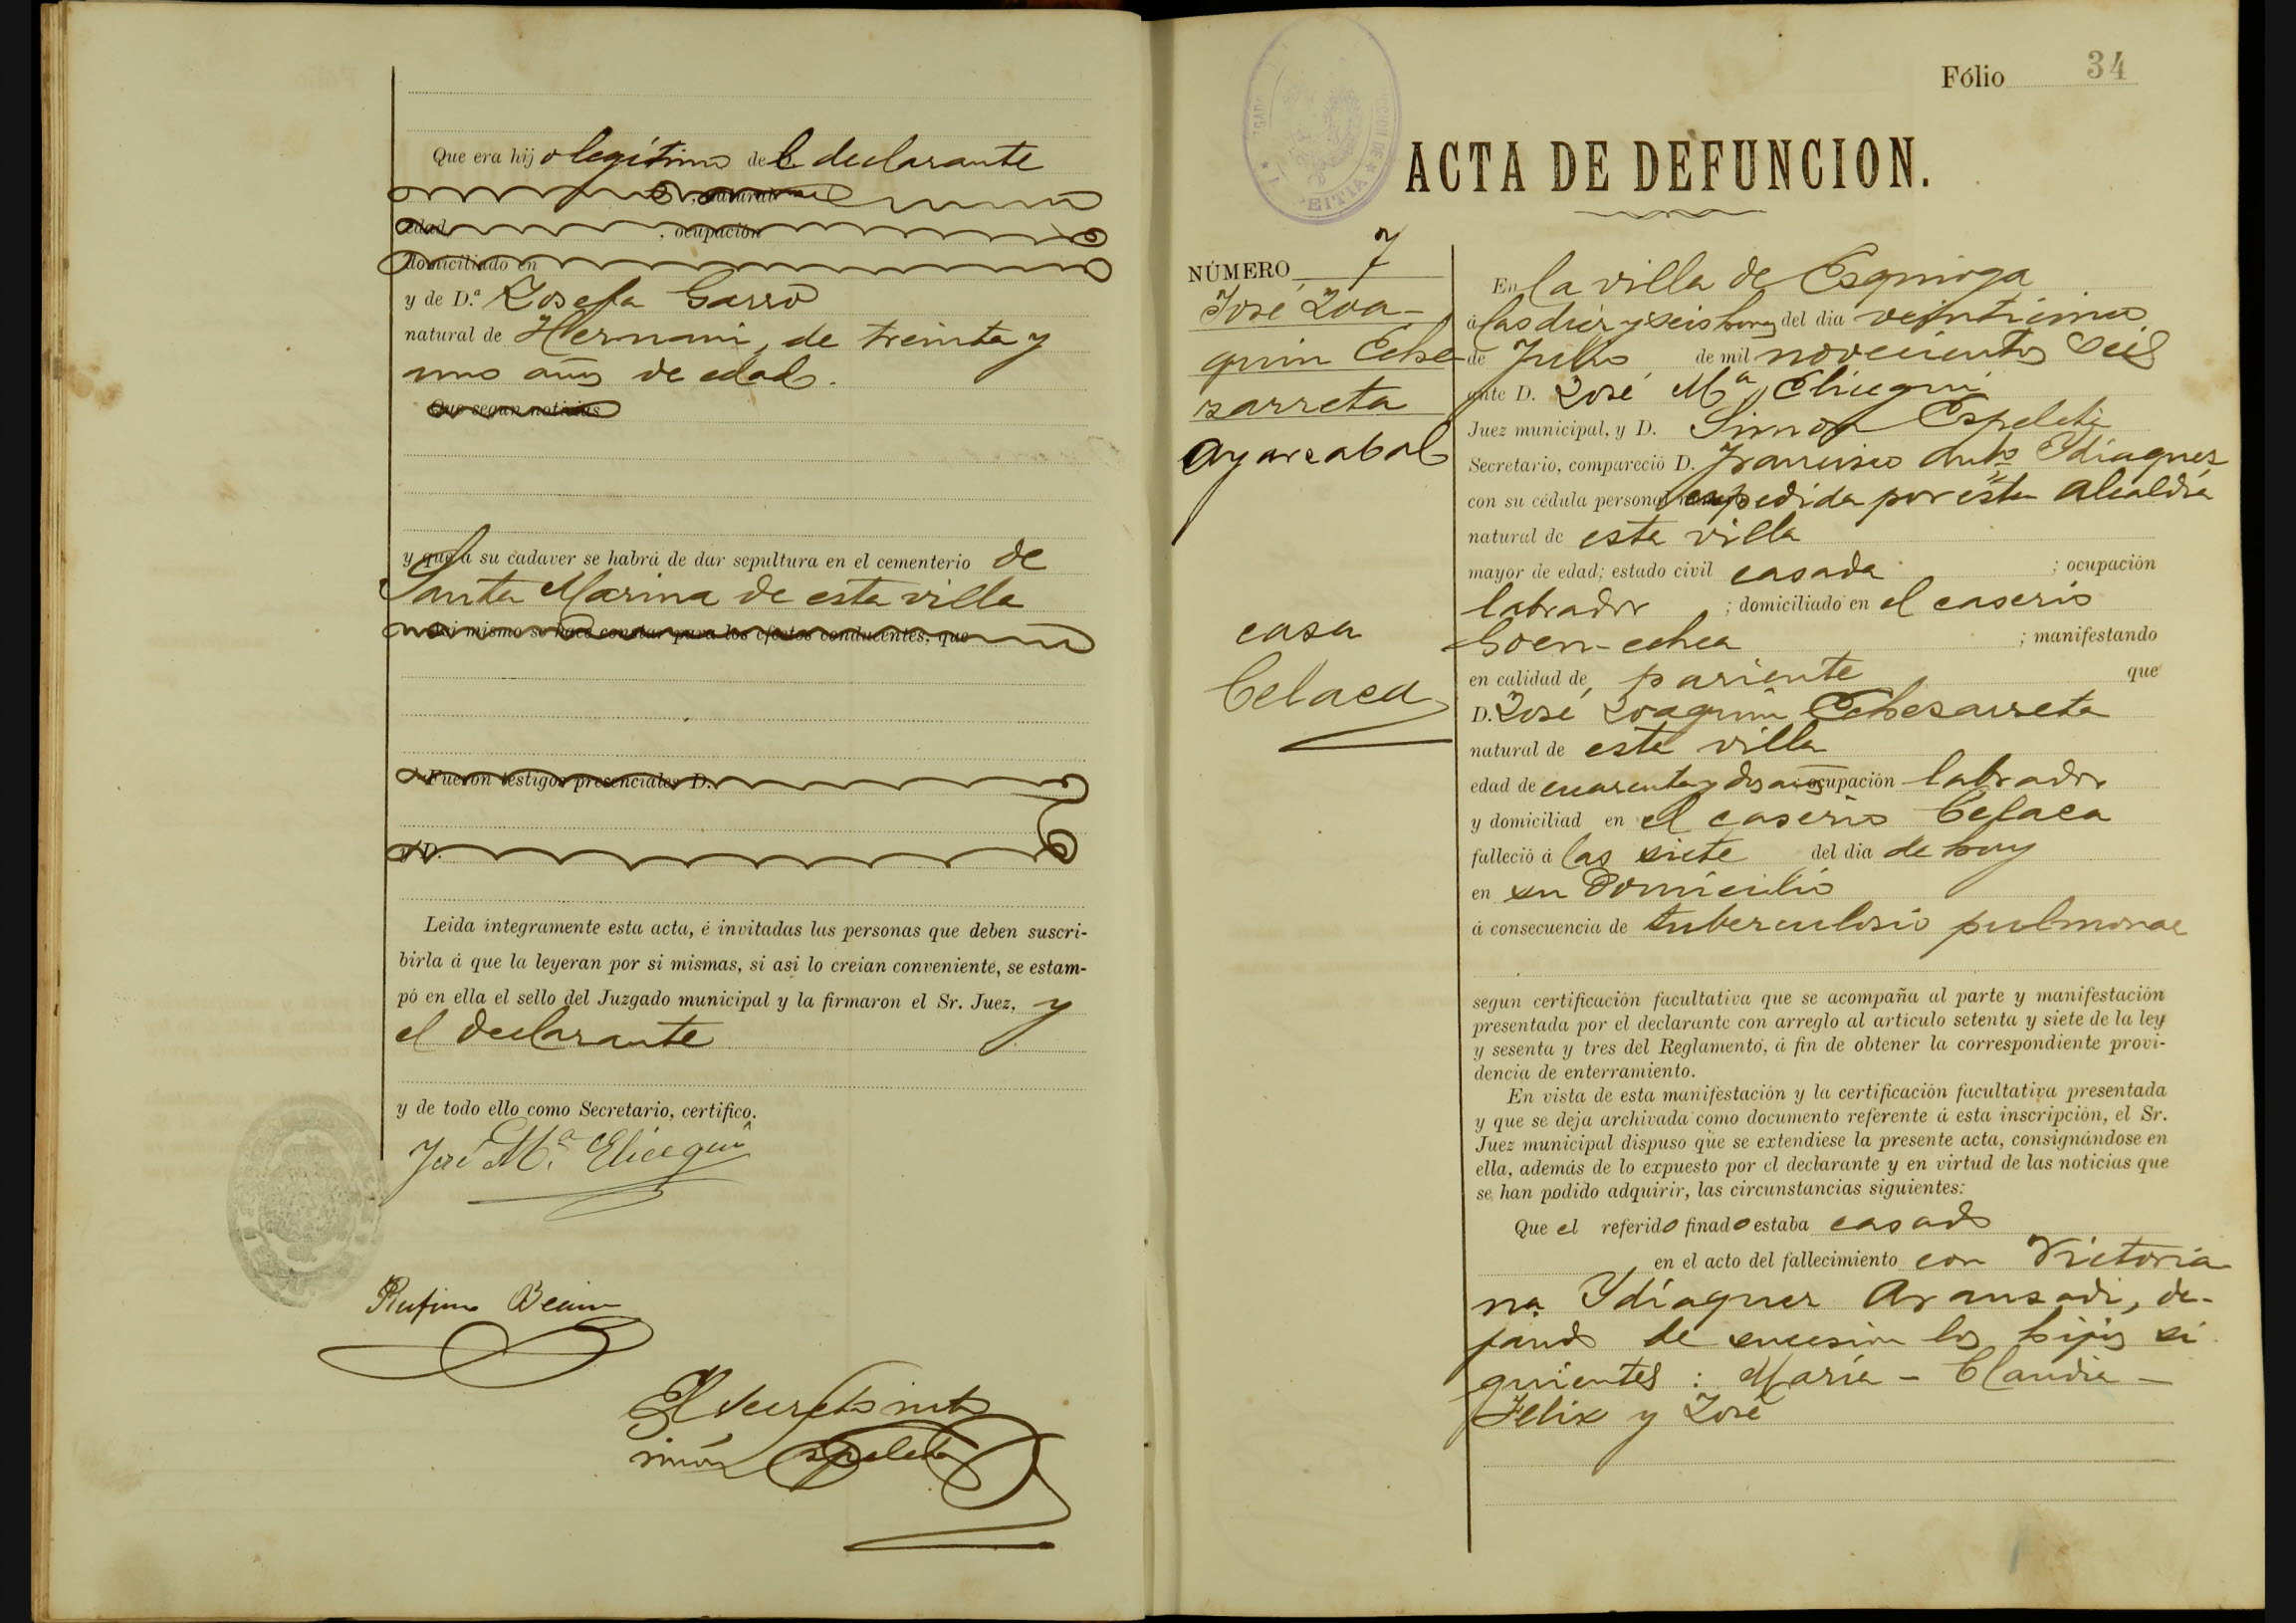 Que era hijo legítimo del declarante
natural
edad , ocupación
domiciliado en
y de D.ª Josefa Garro
natural de Hernani, de treinta y
uno años de edad.
Que segun noticias
y que á su cadaver se habrá de dar sepultura en el cementerio de
Santa Marina de esta villa
Asi mismo se hace constar para los efectos conducentes, que
Fueron testigos presenciales D.
y D.
Leida íntegramente esta acta, é invitadas las personas que deben suscri-
birla á que la leyeran por si mismas, si asi lo creian conveniente, se estam-
pó en ella el sello del Juzgado municipal y la firmaron el Sr. Juez, y
el declarante
y de todo ello como Secretario, certifico.
José M.ª Elicegui
Rufino
El Secret
Simón Espeleta
Fólio 34
ACTA DE DEFUNCION.
NÚMERO 7
José Joa-
quin Eche
zarreta
Ayarzabal
casa
Celaea
En la villa de Esquioga
á las diez y seis horas del dia veinticinco
de Julio de mil novecientos seis
ante D. José Mª Elicegui
Juez municipal, y D. Simon Espeleta
Secretario, compareció D. Francisco Antº Ydiaquez
con su cédula personal expedida por esta Alcaldia
natural de esta villa
mayor de edad; estado civil casado ; ocupación
labrador ; domiciliado en el caserio
Goen-echea ; manifestando
en calidad de pariente que
D. José Joaquin Echezarreta
natural de esta villa
edad de cuarenta y dos años ocupación labrador
y domiciliad en el caserio Celaea
falleció á las siete del dia de hoy
en su domicilio
á consecuencia de tuberculosis pulmonar
segun certificación facultativa que se acompaña al parte y manifestación
presentada por el declarante con arreglo al artículo setenta y siete de la ley
y sesenta y tres del Reglamento, á fin de obtener la correspondiente provi-
dencia de enterramiento.
En vista de esta manifestación y la certificación facultativa presentada
y que se deja archivada como documento referente á esta inscripción, el Sr.
Juez municipal dispuso que se extendiese la presente acta, consignándose en
ella, además de lo expuesto por el declarante y en virtud de las noticias que
se han podido adquirir, las circunstancias siguientes:
Que el referido finado estaba casado
en el acto del fallecimiento con Victoria
na Ydiaquez Aranzadi, de-
jando de sucesion los hijos si
guientes : Maria - Claudia -
Felix y José